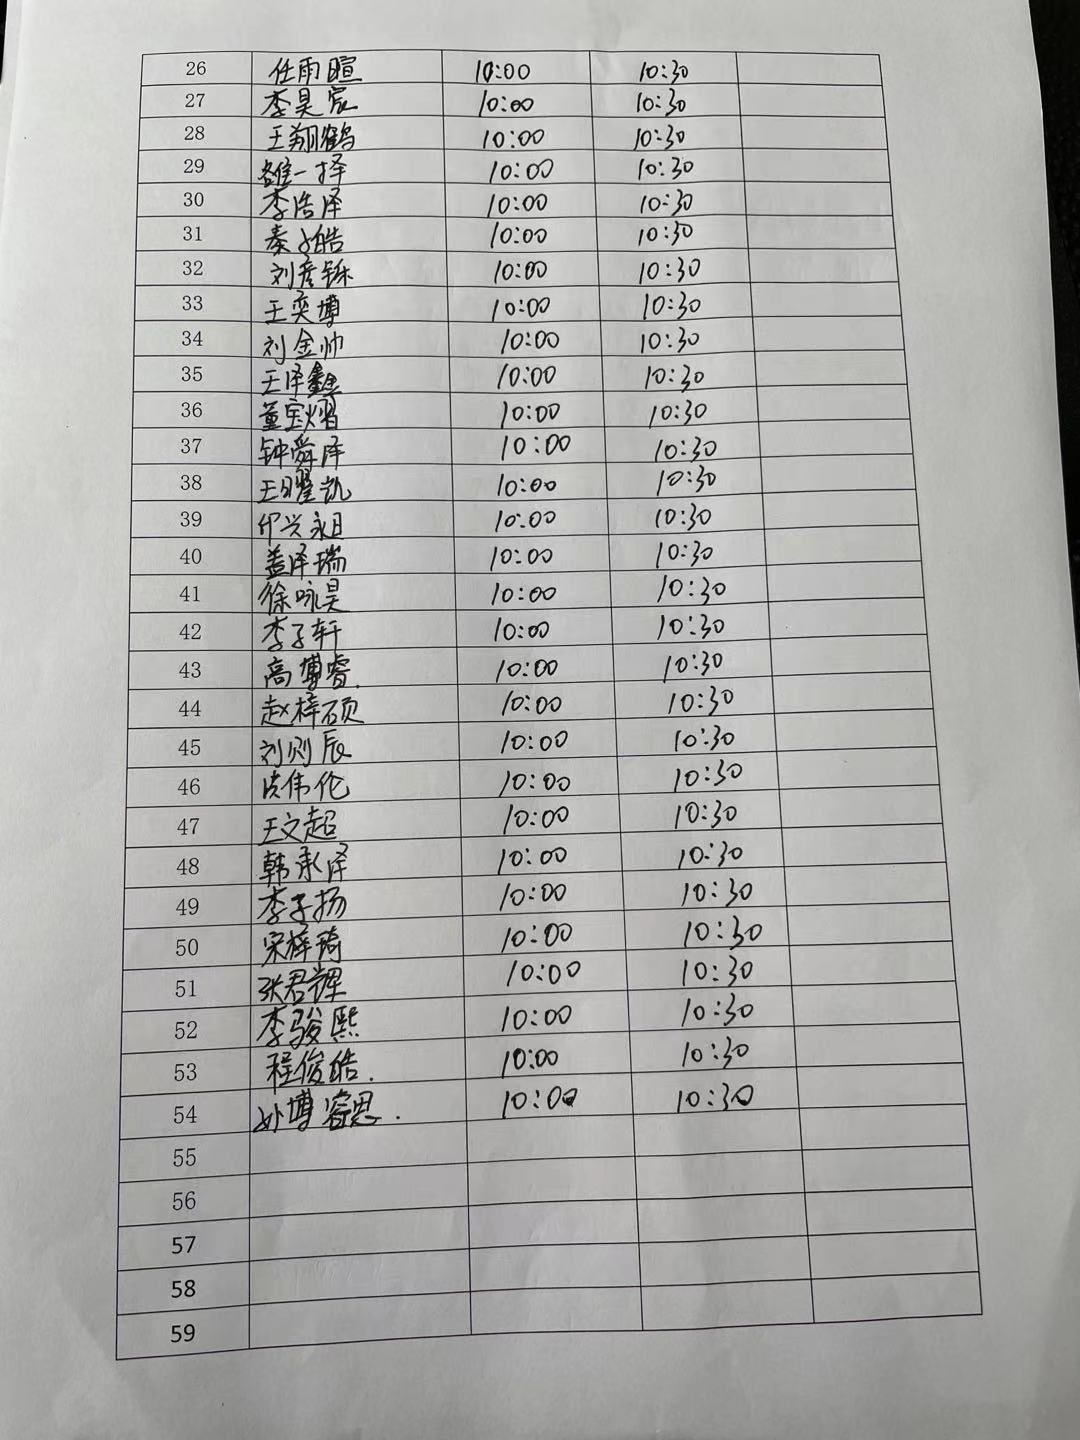 26 任雨暄 10:00 10:30
27 李昊宸 10:00 10:30
28 王翔鹤 10:00 10:30
29 雒一择 10:00 10:30
30 李浩泽 10:00 10:30
31 秦子皓 10:00 10:30
32 刘彦铄 10:00 10:30
33 王奕博 10:00 10:30
34 刘金帅 10:00 10:30
35 王泽鑫 10:00 10:30
36 董宝熠 10:00 10:30
37 钟舜泽 10:00 10:30
38 王曜凯 10:00 10:30
39 印兴永日 10:00 10:30
40 盖泽瑞 10:00 10:30
41 徐咏昊 10:00 10:30
42 李子轩 10:00 10:30
43 高博睿. 10:00 10:30
44 赵梓硕 10:00 10:30
45 刘则辰 10:00 10:30
46 伟伦 10:00 10:30
47 王文超 10:00 10:30
48 韩承泽 10:00 10:30
49 李子扬 10:00 10:30
50 宋梓琦 10:00 10:30
51 张君辉 10:00 10:30
52 李骏熙 10:00 10:30
53 程俊皓. 10:00 10:30
54 孙博睿思. 10:00 10:30
55
56
57
58
59